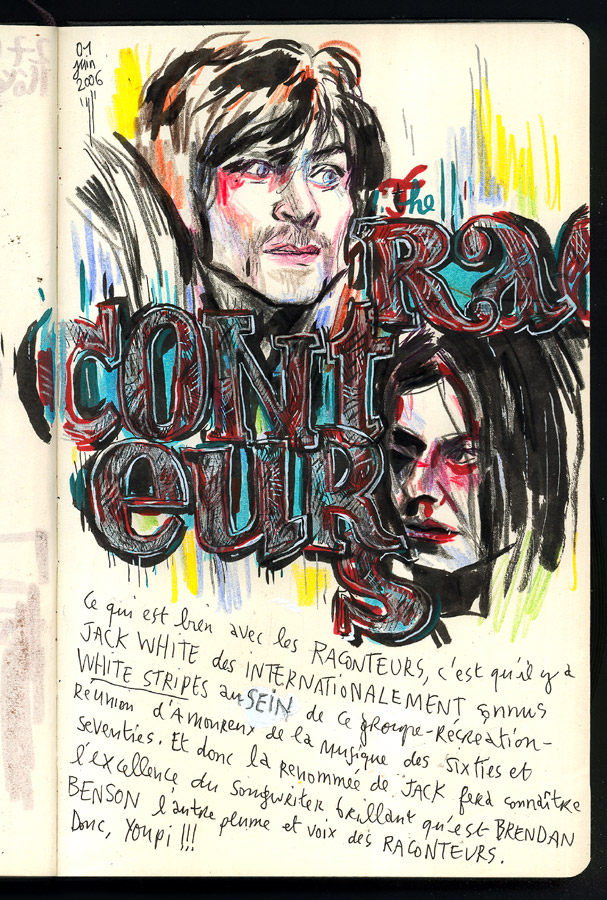 01
juin
2006
The
RAC
CONT
euR
S
Ce qui est bien avec les RACONTEURS, c'est qu'il y a
JACK WHITE des INTERNATIONALEMENT connus
WHITE STRIPES au SEIN de ce groupe-Récréation-
Réunion d'Amoureux de la musique des sixties et
seventies. Et donc la renommée de JACK fera connaître
l'excellence du songwriter brillant qu'est BRENDAN
BENSON l'autre plume et voix des RACONTEURS.
Donc, Youpi !!!